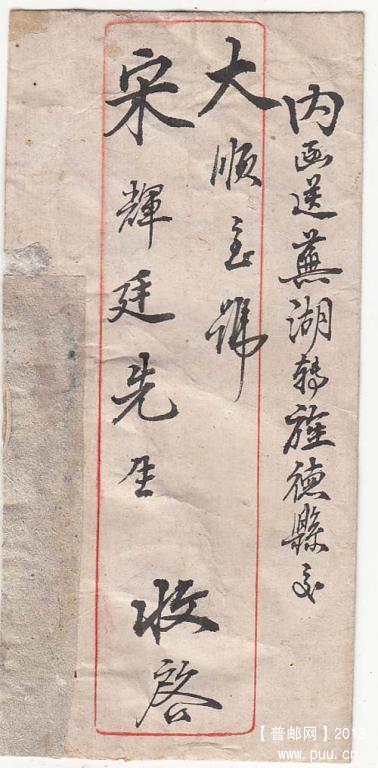 内函送蕪湖轉旌德縣交
大順主號
宋輝廷先生 收啓
【普邮网】2013
www.puu.cn